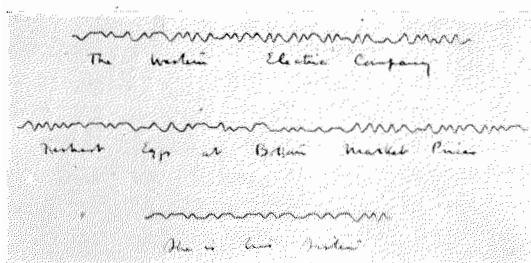 The Western Electric Company
Freshest Eggs at Bottom Market Prices
She is his Sister